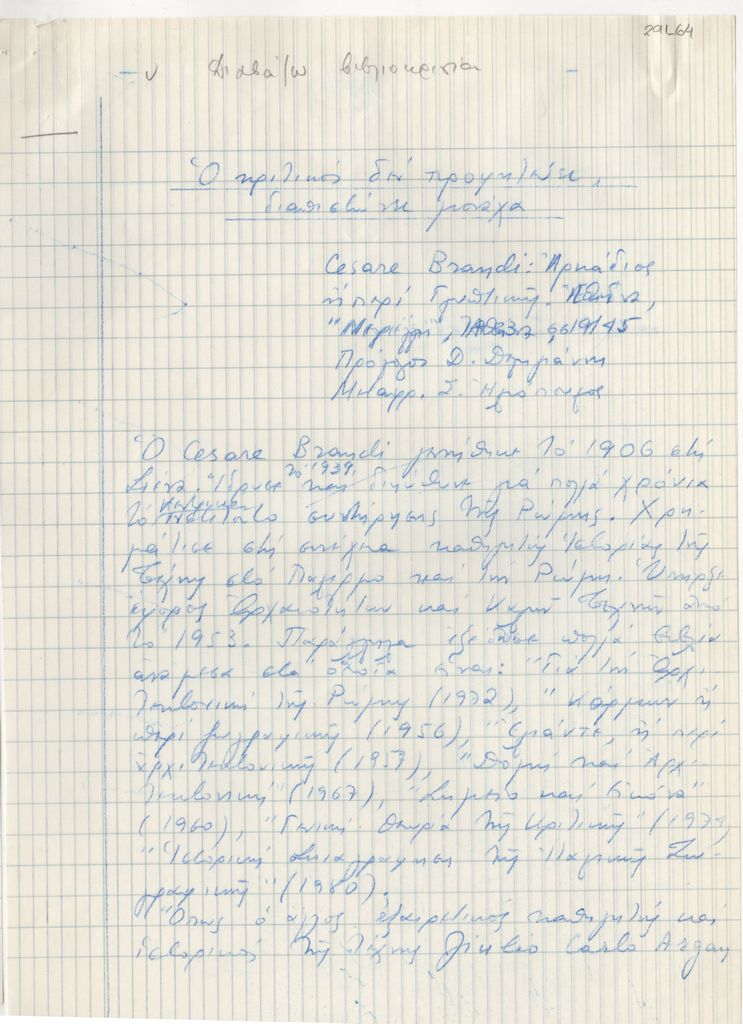 291-64
Διαβάζω βιβλιοκρισία
Ὁ κριτικός δέν προφητεύει,
διαπιστώνει μονάχα
Cesare Brandi: Ἀρκάδιος
ἤ περί Γλυπτικῆς. Ἀθήνα,
145
Πρόλογος Δ.
Μεταφρ. Σ. Ἠλιόπουλος
Ὁ Cesare Brandi γεννήθηκε τό 1906 στή
Σιένα. Ἵδρυσε τό 1939 καί διηύθυνε γιά πολλά χρόνια
τό Ἰνστιτοῦτο συντήρησης τῆς Ρώμης. Χρη-
μάτισε στή συνέχεια καθηγητής Ἱστορίας τῆς
Τέχνης στό Παλέρμο καί τή Ρώμη. Ὑπῆρξε
ἔφορος Ἀρχαιοτήτων καί Καλῶν Τεχνῶν ἀπό
τό 1953. Παράλληλα ἐξέδωσε πολλά βιβλία
ἀνάμεσα στά ὁποῖα εἶναι: "Γιά τήν Ἀρχι-
τεκτονική τῆς Ρώμης (1972), "Κάρμινε ἤ
περί ζωγραφικῆς (1956), "Ἐλιάντε, ἤ περί
ἀρχιτεκτονικῆς (1957), "Δομή καί Ἀρχι-
τεκτονική" (1967), "Σημεῖο καί Εἰκόνα"
(1960), "Γενική θεωρία τῆς Κριτικῆς" (197
"Ἱστορική τῆς Ἰταλικῆς Ζω-
γραφικῆς" (1980).
Ὅπως ὁ ἄλλος ἐξαιρετικός καθηγητής καί
ἱστορικός τῆς τέχνης Giulio Carlo Argan